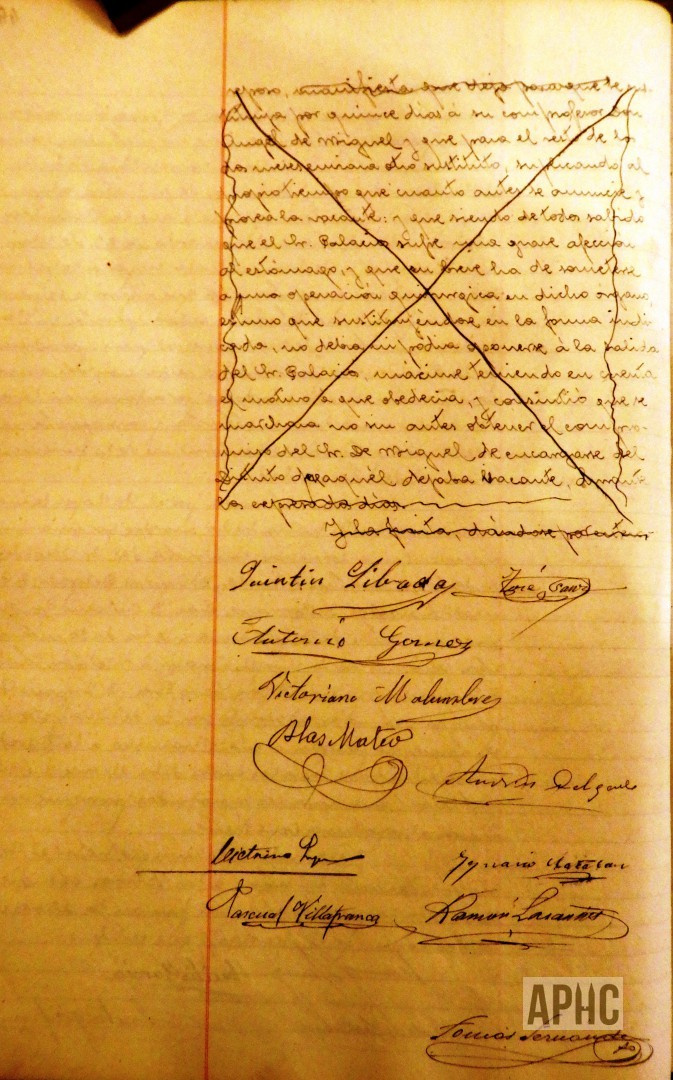 reposo, manifiesta que dejo para que le sus
tituya por quince dias á su comprofesor Don
Angel de Miguel y que para el resto de los
dos meses enviara otro sustituto, suplicando al
propio tiempo que cuanto antes se anuncie y
provea la vacante: y que siendo de todos sabido
que el Sr. Palacio sufre una grave afeccion
al estómago, y que en breve ha de someterse
a una operación quirurgica en dicho órgano,
estimo que sustituiéndose en la forma indi
cada, no debia ni podia oponerse á la salida
del Sr. Palacio, máxime teniendo en cuenta
el motivo a que obedecia, y consintió que se
marchara no sin antes obtener el compro
miso del Sr. De Miguel de encargarse del
Distrito que aquél dejaba vacante, durante
los expresados dias.
Quintin Librada José Sanz
Antonio Gomez
Victoriano Malumbres
Blas Mateo
Andrés Delgado
Victorino
Ygnacio Catalan
Pascual Villafranca Ramón Lasantas
Tomás Fernandez
APHC